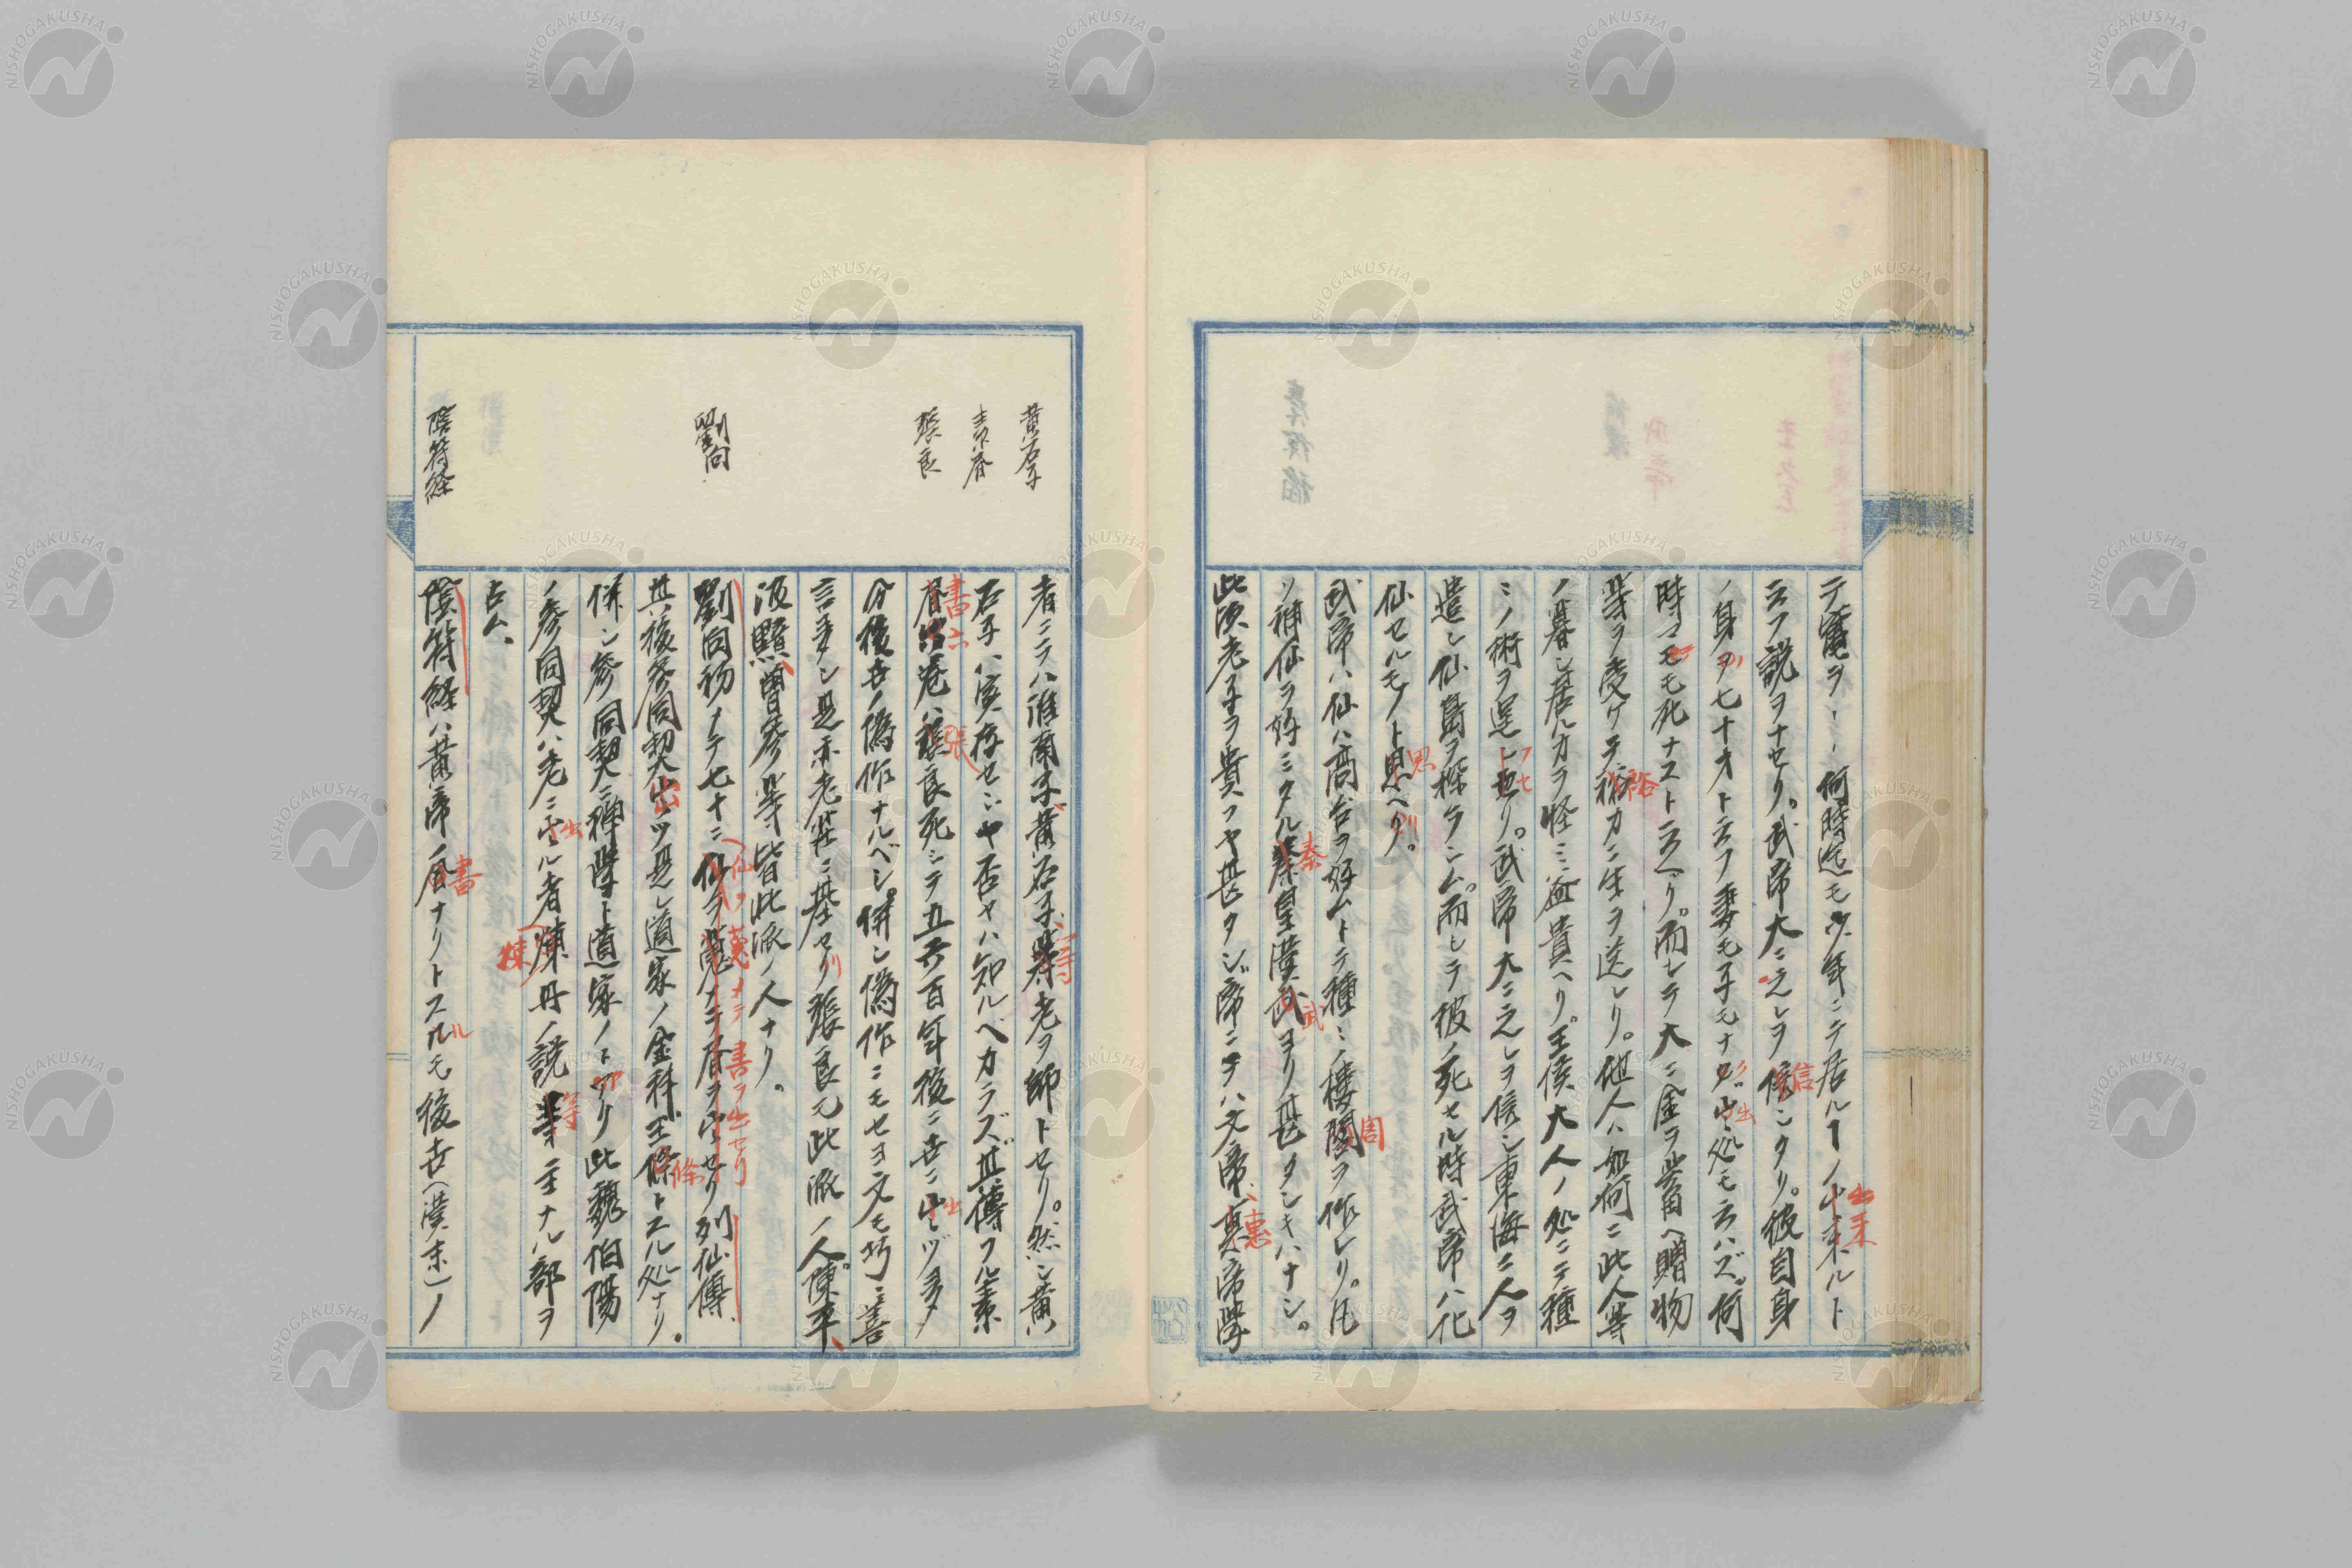 テ竃ヲ〻〻何時迄モ少年ニテ居ルヿノ出来ルト
云フ説ヲナセリ。武帝大ニ之レヲ信シタリ。彼自身
ノ身ヲ七十才ト云フ妻モ子モナク出処モ云ハズ。何
時マモモ死ナスト云ヘリ。而シテ大ニ金ヲ蓄ヘ贈物
等ヲ受ケテ裕カニ生ヲ送レリ。他人ハ如何ニ此人等
ノ暮シ居ルカヲ怪ミ益貴ヘリ。王侯大人ノ処ニテ種
ミノ術ヲ逞フセリ。武帝大ニ之レヲ信シ東海ニ人ヲ
遣シ仙島ヲ探ラシム。而シテ彼ノ死セル時武帝ハ化
仙セルモノト思ヘリ。
武帝ハ仙ハ高台ヲ好ムトテ種ミノ樓閣ヲ作レリ。凡
ソ神仙ヲ好ミタル秦皇漢武ヨリ甚タシキハナシ。
此頃老子ヲ貴フヤ甚タシ帝ニテハ文帝、景帝學
黄石子
素書
張良
劉向
陰符経
者ニテハ淮南子、黄石子、等老ヲ師トセリ。然シ黄
石子ハ実存セシヤ否ヤハ知ルベカラズ、其傳フル素
書ハ張良死シテ五六百年後ニ世ニ出ヅ多
分後世ノ偽作ナルベシ。併シ偽作ニモセヨ文モ巧ニ善
言多シ是亦老荘ニ基セリ張良モ此派ノ人。陳平、
汲黯、曽參等皆此派ノ人ナリ。
劉向初メテ七十二仙ヲ撰ナテ書ヲ出セリ列仙傳
其後參同契出ヅ是レ道家ノ金科玉條トスル処ナリ。
併シ參同契ニ禅學ト道家ノトアリ此魏伯陽
ノ參同契ハ老ニ出ル者煉丹ノ説等主ナル部ヲ
占ム、
陰符経ハ黄帝ノ書ナリトスルモ後世（漢末）ノ